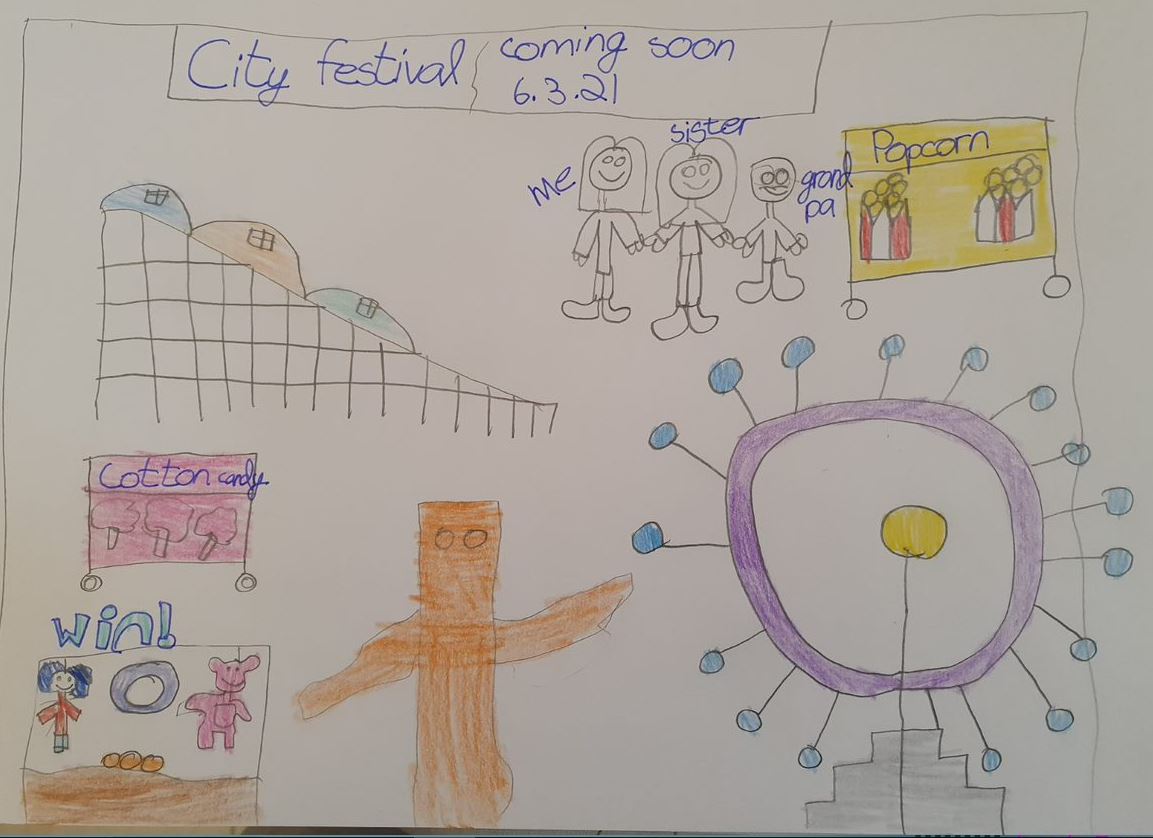 City festival
coming soon
6.3.21
me
sister
grand
pa
Popcorn
Cotton candy
Win!